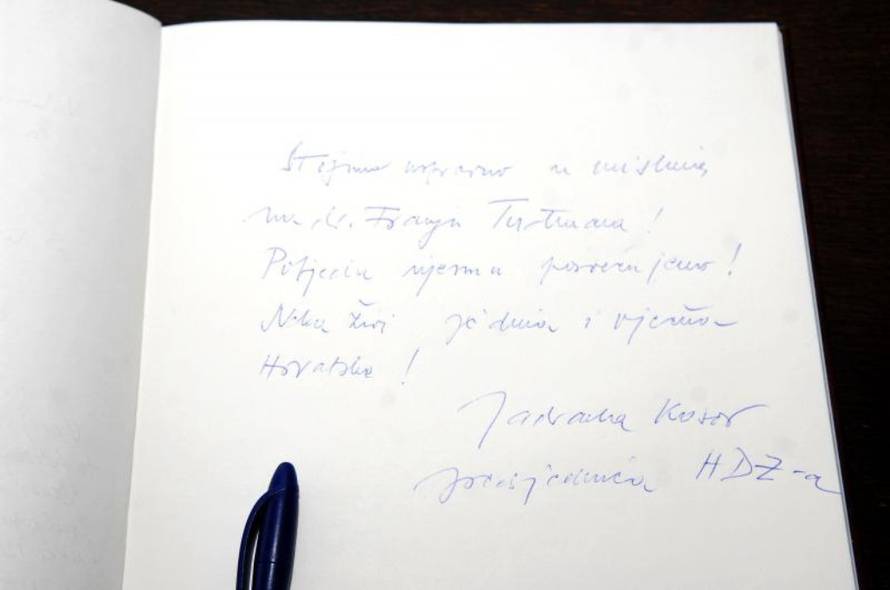 Stojimo uspravno u mislima
na dr. Franju Tuđmana!
Pobjedu njemu posvećujemo!
Neka živi jedina i vječna
Hrvatska!
Jadranka Kosor
predsjednica HDZ-a